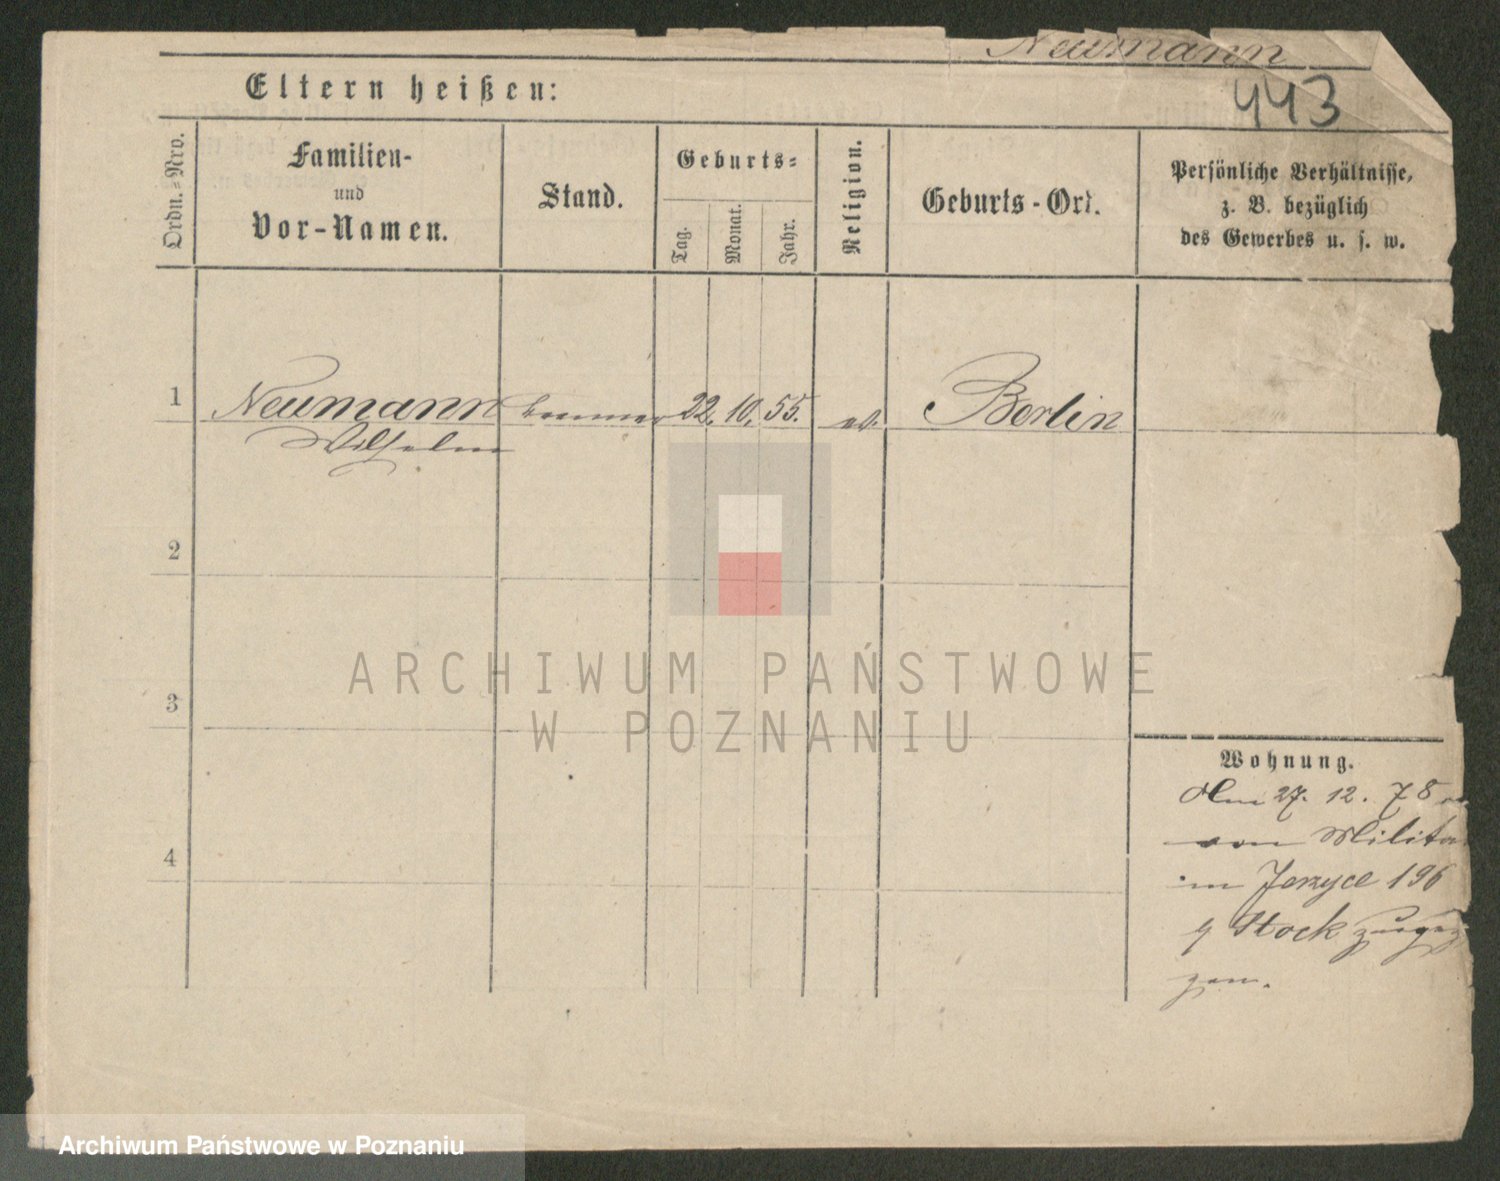 Neumann
443
Eltern heißen:
Ordn.-Nro.
Familien-
und
Vor-Namen.
Stand.
Geburts-
Tag.
Monat.
Jahr.
Religion.
Geburts-Ort.
Persönliche Verhältnisse,
z. B. bezüglich
des Gewerbes u. s. w.
1 Neumann 22. 10. 55. ev. Berlin
Wilhelm
2
3
4
Wohnung.
Am 27. 12. 78
von Militä
in Jerzyce 196
Stock zuge
zen.
ARCHIWUM PAŃSTWOWE
W POZNANIU
Archiwum Państwowe w Poznaniu